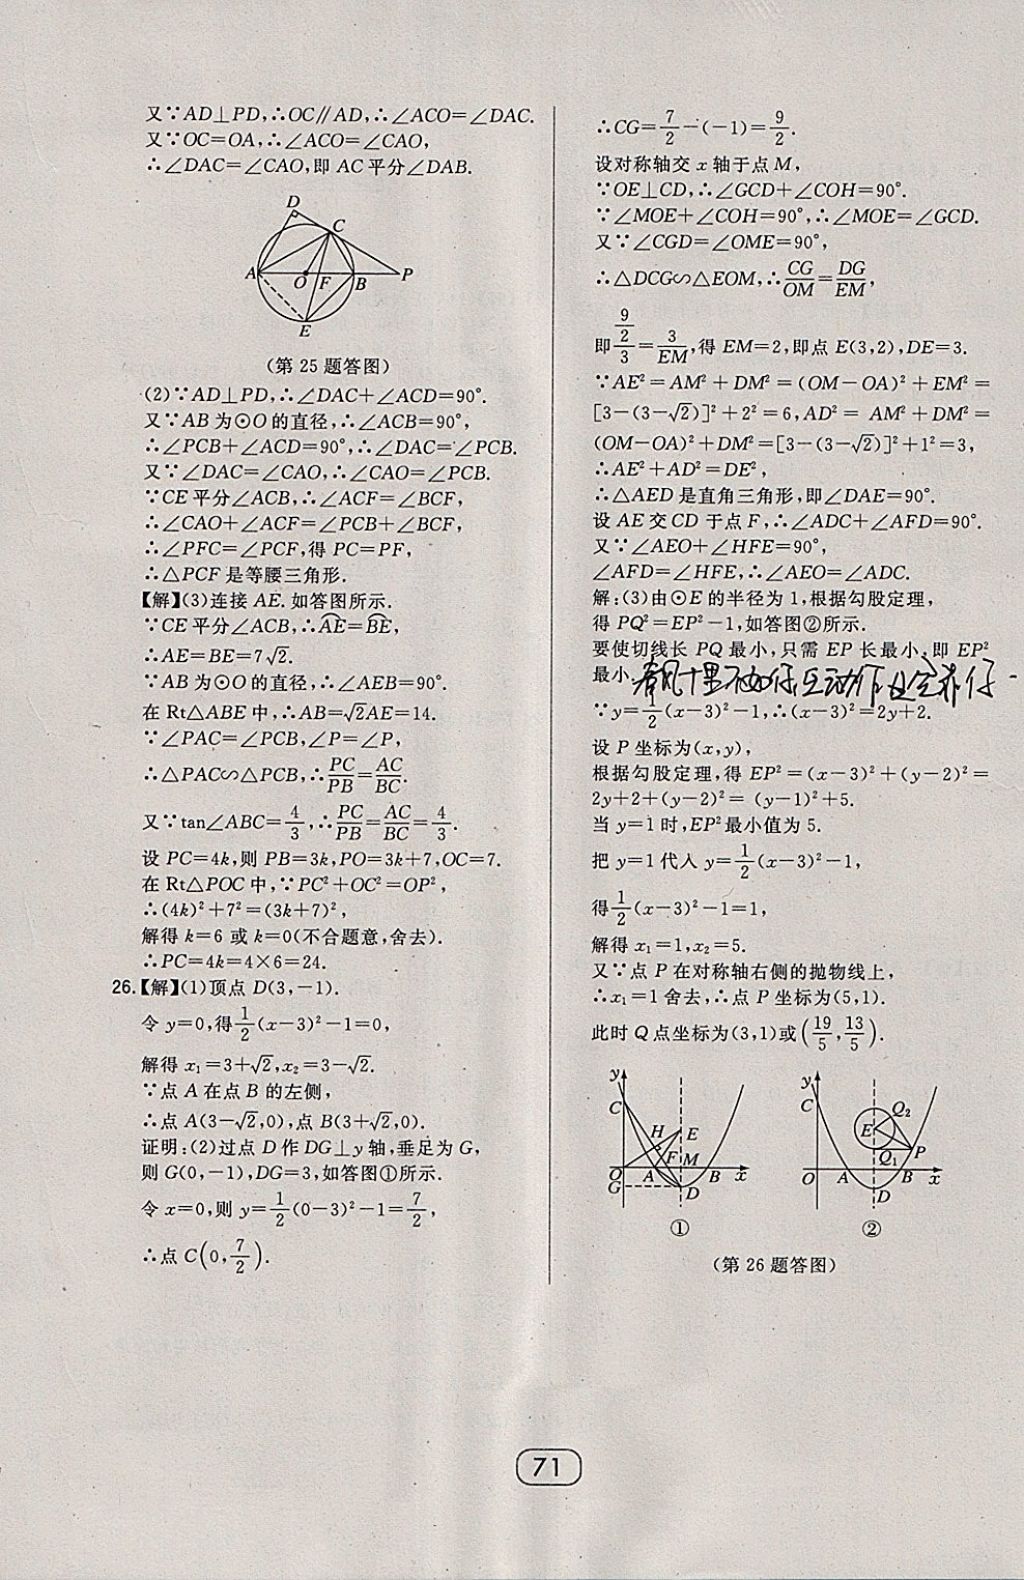 又∵AD⊥PD,∴OC∥AD,∴∠ACO=∠DAC.
又∵OC=OA,∴∠ACO=∠CAO,
∴∠DAC=∠CAO,即 AC 平分∠DAB.
D
C
A
O
F
B
P
E
(第 25 题答图)
(2)∵AD⊥PD,∴∠DAC+∠ACD=90°.
又∵AB 为⊙O 的直径,∴∠ACB=90°,
∴∠PCB+∠ACD=90°,∴∠DAC=∠PCB.
又∵∠DAC=∠CAO,∴∠CAO=∠PCB.
∵CE 平分∠ACB,∴∠ACF=∠BCF,
∴∠CAO+∠ACF=∠PCB+∠BCF,
∴∠PFC=∠PCF,得 PC=PF,
∴△PCF 是等腰三角形.
【解】(3)连接 AE.如答图所示.
∵CE 平分∠ACB,∴⌢AE=⌢BE,
∴AE=BE=7√2.
∵AB 为⊙O 的直径,∴∠AEB=90°.
在 Rt△ABE 中,∴AB=√2AE=14.
∵∠PAC=∠PCB,∠P=∠P,
∴△PAC∽△PCB,∴PC/PB=AC/BC.
又∵tan∠ABC=4/3,∴PC/PB=AC/BC=4/3.
设 PC=4k,则 PB=3k,PO=3k+7,OC=7.
在 Rt△POC 中,∵PC²+OC²=OP²,
∴(4k)²+7²=(3k+7)²,
解得 k=6 或 k=0(不合题意,舍去).
∴PC=4k=4×6=24.
26.【解】(1)顶点 D(3,-1).
令 y=0,得1/2(x-3)²-1=0,
解得 x₁=3+√2,x₂=3-√2.
∵点 A 在点 B 的左侧,
∴点 A(3-√2,0),点 B(3+√2,0).
证明:(2)过点 D 作 DG⊥y 轴,垂足为 G,
则 G(0,-1),DG=3,如答图①所示.
令 x=0,则 y=1/2(0-3)²-1=7/2,
∴点 C(0,7/2).
∴CG=7/2-(-1)=9/2.
设对称轴交 x 轴于点 M,
∵OE⊥CD,∴∠GCD+∠COH=90°.
∵∠MOE+∠COH=90°,∴∠MOE=∠GCD.
又∵∠CGD=∠OME=90°,
∴△DCG∽△EOM,∴CG/OM=DG/EM,
即(9/2)/3=3/EM,得 EM=2,即点 E(3,2),DE=3.
∵AE²=AM²+DM²=(OM-OA)²+EM²=
[3-(3-√2)]²+2²=6,AD²=AM²+DM²=
(OM-OA)²+DM²=[3-(3-√2)]²+1²=3,
∴AE²+AD²=DE²,
∴△AED 是直角三角形,即∠DAE=90°.
设 AE 交 CD 于点 F,∴∠ADC+∠AFD=90°.
又∵∠AEO+∠HFE=90°,
∠AFD=∠HFE,∴∠AEO=∠ADC.
解:(3)由⊙E 的半径为 1,根据勾股定理,
得 PQ²=EP²-1,如答图②所示.
要使切线长 PQ 最小,只需 EP 长最小,即 EP²
最小.春风十里不如你
∵y=1/2(x-3)²-1,∴(x-3)²=2y+2.
设 P 坐标为(x,y),
根据勾股定理,得 EP²=(x-3)²+(y-2)²=
2y+2+(y-2)²=(y-1)²+5.
当 y=1 时,EP²最小值为 5.
把 y=1 代入 y=1/2(x-3)²-1,
得1/2(x-3)²-1=1,
解得 x₁=1,x₂=5.
又∵点 P 在对称轴右侧的抛物线上,
∴x₁=1 舍去,∴点 P 坐标为(5,1).
此时 Q 点坐标为(3,1)或(19/5,13/5).
y
C
H
E
F
M
O
A
B
x
G
D
①
y
C
Q₂
E
Q₁
P
O
A
B
x
D
②
(第 26 题答图)
71